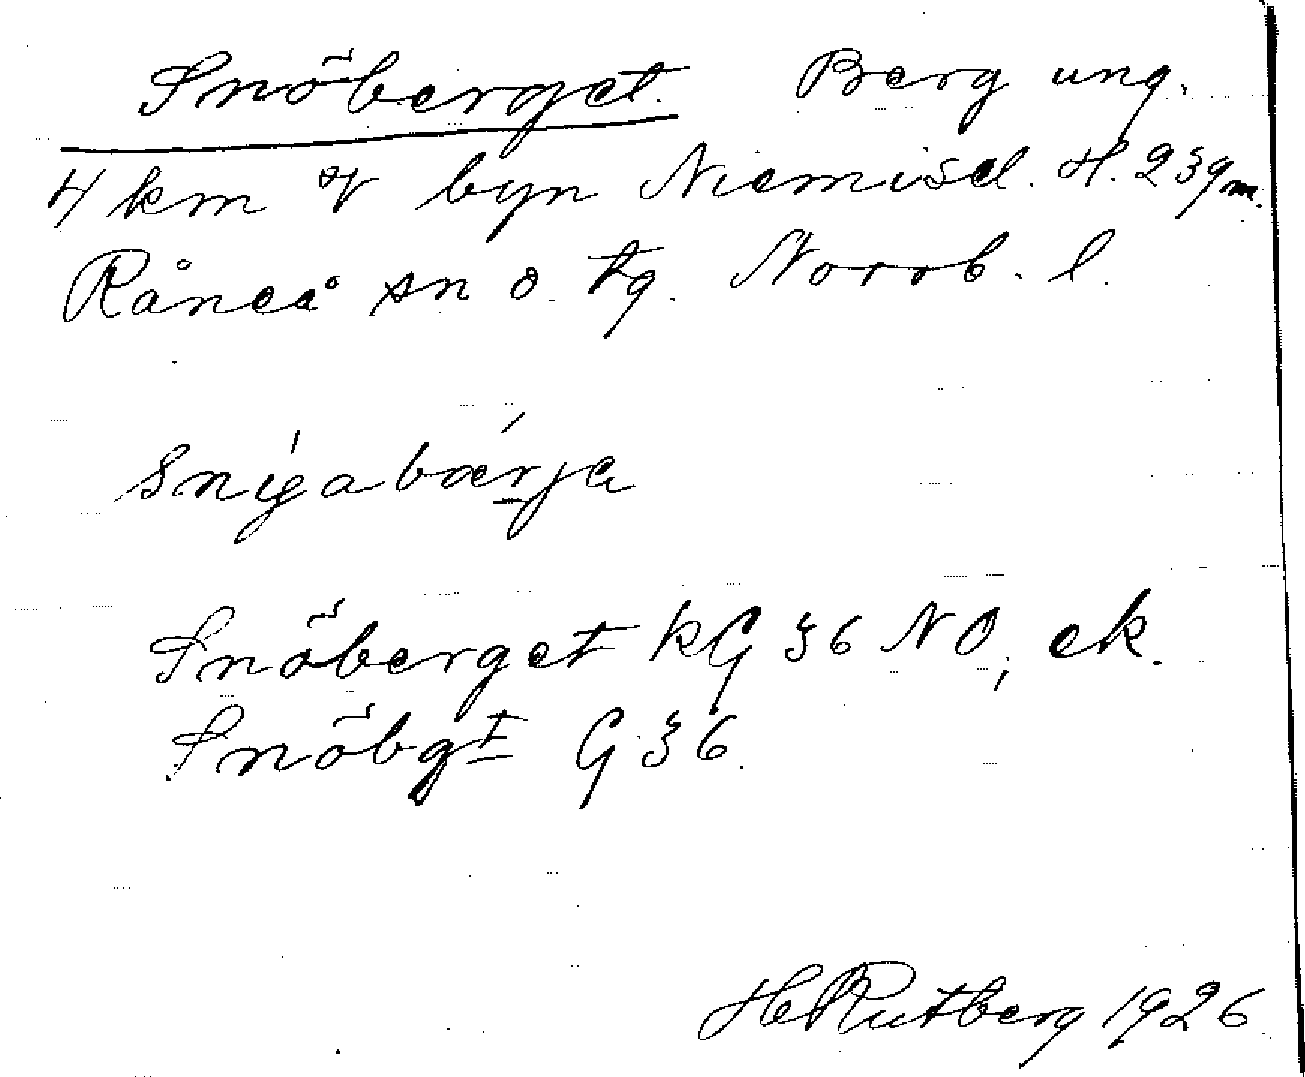 Snöberget. Berg ung.
4 km v byn Niemisel. H. 239 m.
Råneå sn o. tg. Norrb. l.
snýabárja
Snöberget kG 36 NO, ek.
Snöbgt G 36.
H Rutberg 1926